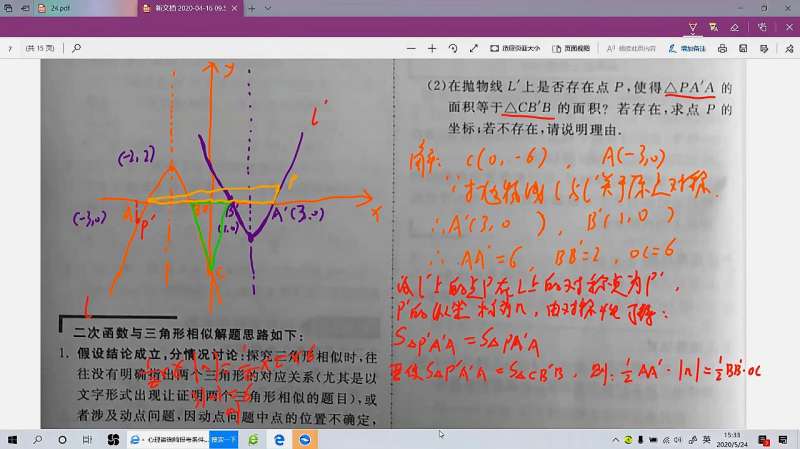 24.pdf
新文档 2020-04-16 09.5
7 (共 15 页)
适应页面大小
页面视图
编辑此页内容
增加备注
(2)在抛物线 L′上是否存在点 P,使得△PA′A 的
面积等于△CB′B 的面积?若存在,求点 P 的
坐标;若不存在,请说明理由.
解: C(0, -6), A(-3,0)
∵抛物线L与L′关于原点对称.
∴A′(3,0), B′(1,0)
∴ AA′=6, BB′=2, OC=6
设L′上的点P在L上的对称点为P′,
P′的纵坐标为n, 由对称性可得:
S△P′A′A = S△PA′A
要使S△P′A′A = S△CB′B, 则: ½AA′·|n|=½BB′·OC
y
L′
(-2,2)
P
(-3,0)
A
P′
B
B′
(1,0)
A′(3,0)
x
C
L
二次函数与三角形相似解题思路如下:
1. 假设结论成立,分情况讨论:探究三角形相似时,往
往没有明确指出两个三角形的对应关系(尤其是以
文字形式出现让证明两个三角形相似的题目),或
者涉及动点问题,因动点问题中点的位置不确定,
心理咨询师报考条件...
搜索一下
英
15:33
2020/5/24